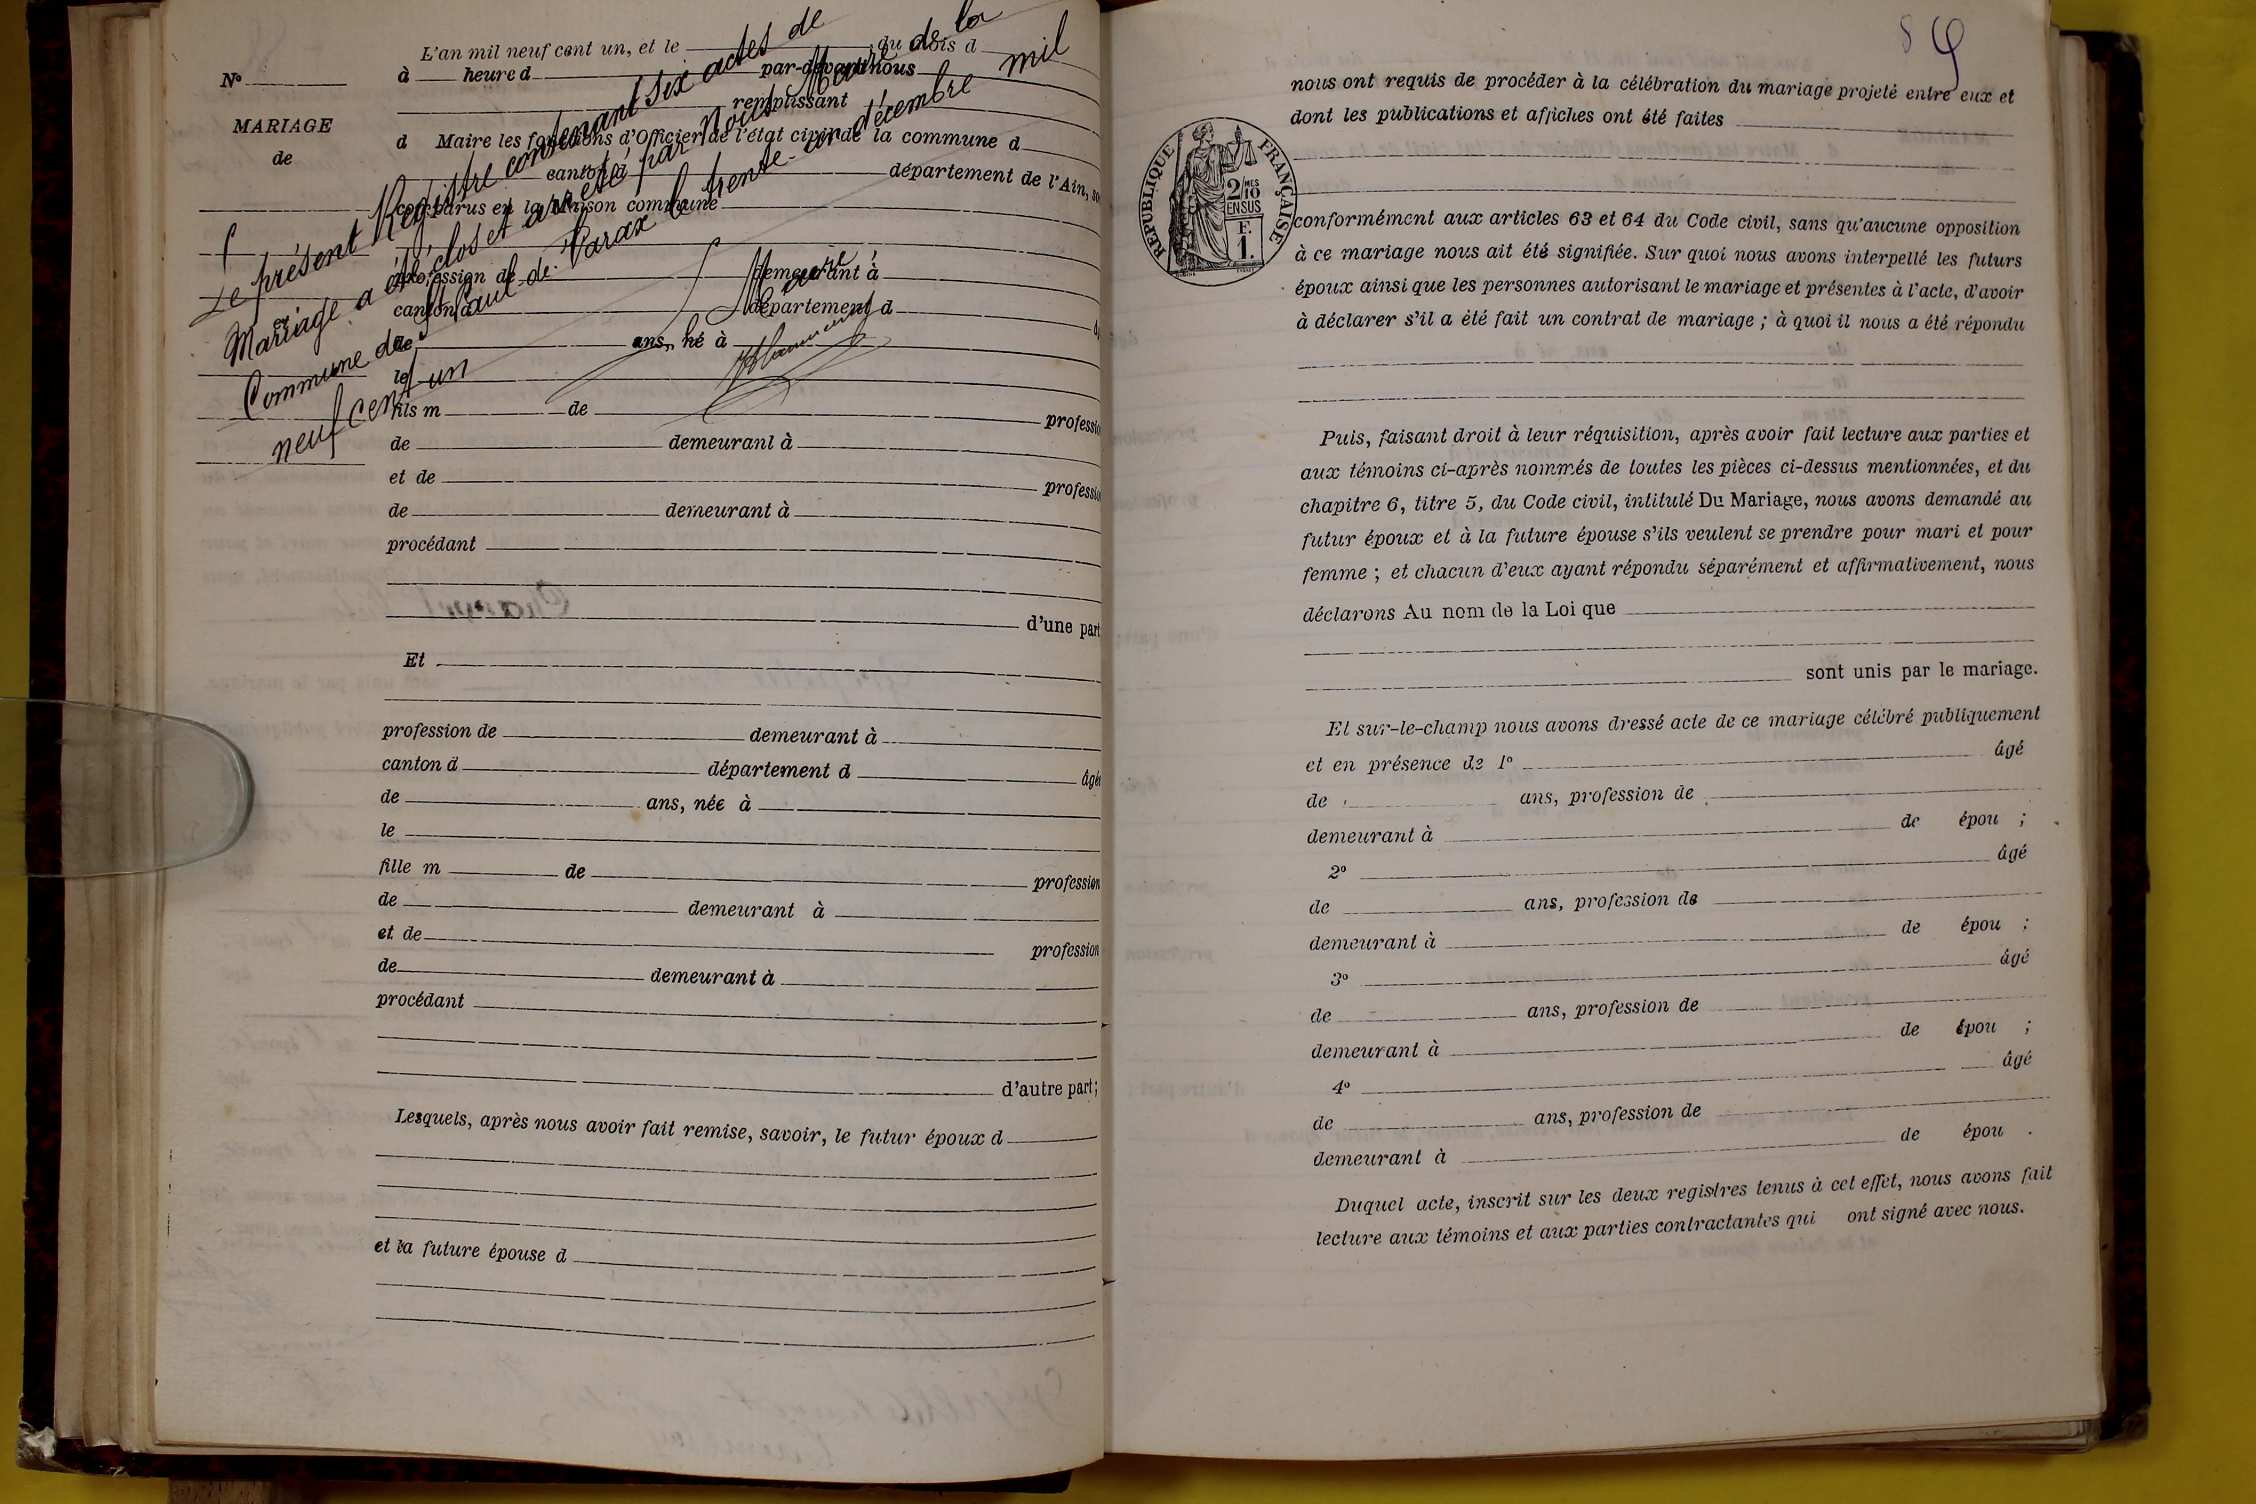 N°
MARIAGE
de
L'an mil neuf cent un, et le du mois d
à heure d par-devant nous
remplissant
d Maire les fonctions d'Officier de l'état civil de la commune d
canton d département de l'Ain, so
comparus en la Maison commune
profession de demeurant à
canton d département d
de ans, né à
le
fils m de professio
de demeurant à
et de professio
de demeurant à
procédant
d'une part
Et
profession de demeurant à
canton d département d âgé
de ans, née à
le
fille m de profession
de demeurant à
et de profession
de demeurant à
procédant
d'autre part;
Lesquels, après nous avoir fait remise, savoir, le futur époux d
et la future épouse d
Le présent Registre contenant six actes de
Mariage a été clos et arrêté par Nous Maire de la
Commune de St Paul-de-Varax le trente-un décembre mil
neuf cent un
Le Maire
REPUBLIQUE FRANÇAISE
2/10 MES
EN SUS
F.
1.
nous ont requis de procéder à la célébration du mariage projeté entre eux et
dont les publications et affiches ont été faites
conformément aux articles 63 et 64 du Code civil, sans qu'aucune opposition
à ce mariage nous ait été signifiée. Sur quoi nous avons interpellé les futurs
époux ainsi que les personnes autorisant le mariage et présentes à l'acte, d'avoir
à déclarer s'il a été fait un contrat de mariage ; à quoi il nous a été répondu
Puis, faisant droit à leur réquisition, après avoir fait lecture aux parties et
aux témoins ci-après nommés de toutes les pièces ci-dessus mentionnées, et du
chapitre 6, titre 5, du Code civil, intitulé Du Mariage, nous avons demandé au
futur époux et à la future épouse s'ils veulent se prendre pour mari et pour
femme ; et chacun d'eux ayant répondu séparément et affirmativement, nous
déclarons Au nom de la Loi que
sont unis par le mariage.
Et sur-le-champ nous avons dressé acte de ce mariage célébré publiquement
et en présence de 1° âgé
de ans, profession de
demeurant à de épou ;
2° âgé
de ans, profession de
demeurant à de épou ;
3° âgé
de ans, profession de
demeurant à de épou ;
4° âgé
de ans, profession de
demeurant à de épou .
Duquel acte, inscrit sur les deux registres tenus à cet effet, nous avons fait
lecture aux témoins et aux parties contractantes qui ont signé avec nous.